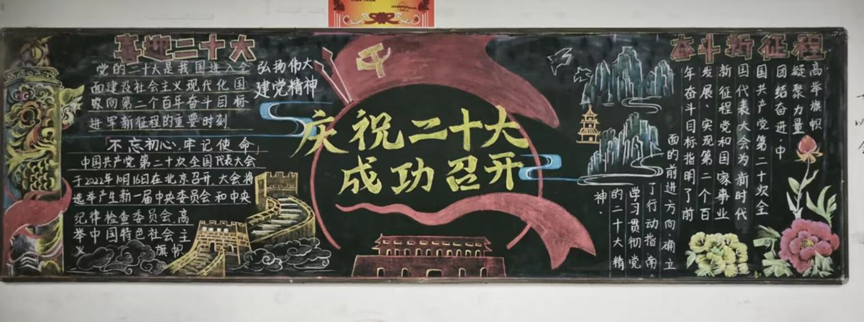 喜迎二十大
党的二十大是我国进入全
面建设社会主义现代化国
家向第二个百年奋斗目标
进军新征程的重要时刻
弘扬伟大
建党精神
不忘初心,牢记使命
中国共产党第二十次全国代表大会
于2022年10月16日在北京召开,大会将
选举产生新一届中央委员会和中央
纪律检查委员会,高
举中国特色社会主
义旗帜
庆祝二十大
成功召开
奋斗新征程
高举旗帜
凝聚力量
团结奋进中
国共产党第二十次全
国代表大会为新时代
新征程党和国家事业
发展、实现第二个百
年奋斗目标指明了前
面的前进方向确立
了行动指南。
学习贯彻党
的二十大精
神。